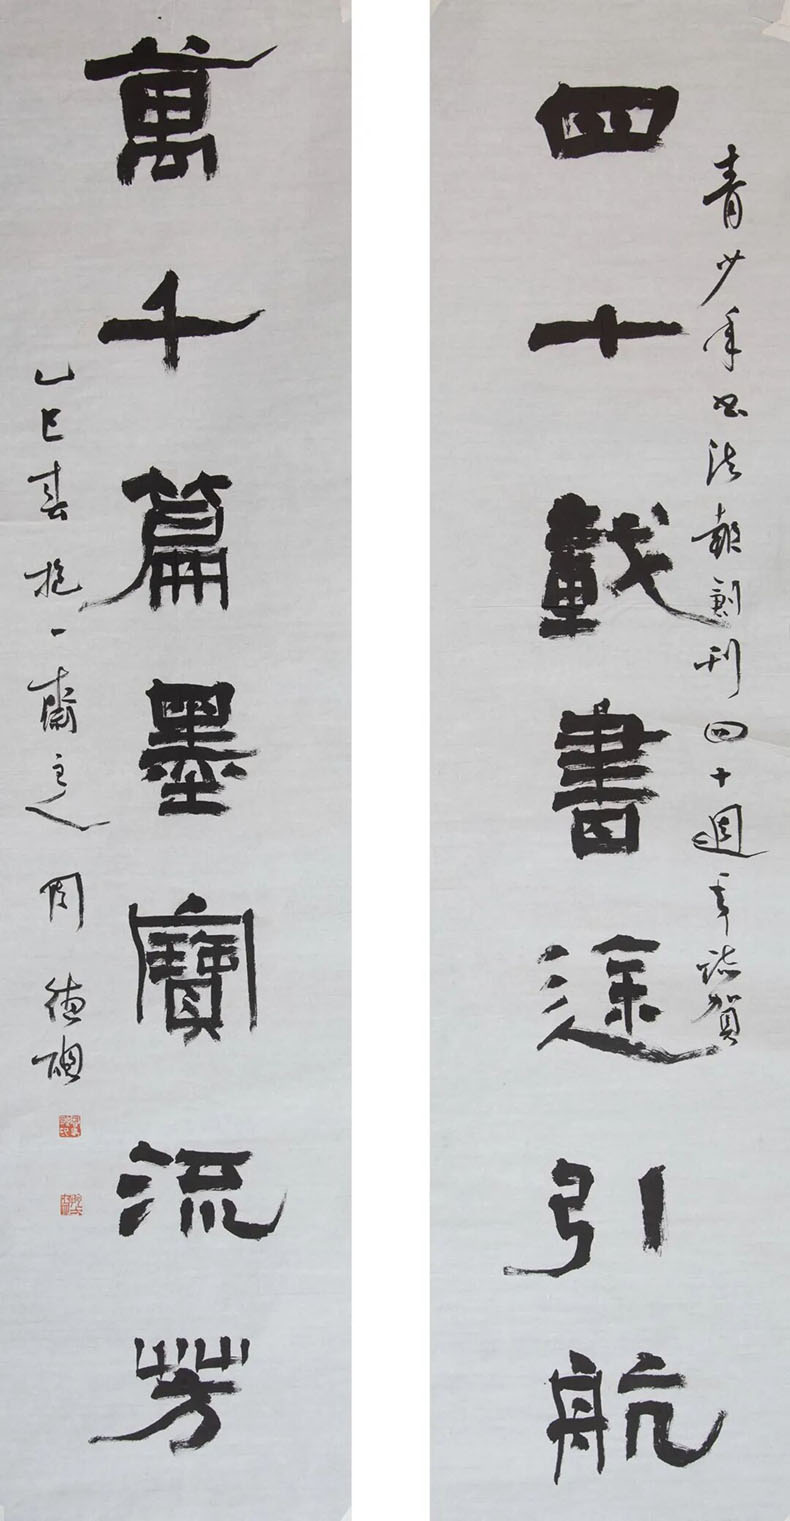 青少年书法报創刊四十週年誌賀
四十載書途引航
萬千篇墨寶流芳
乙巳春抱一齋主人周德聰